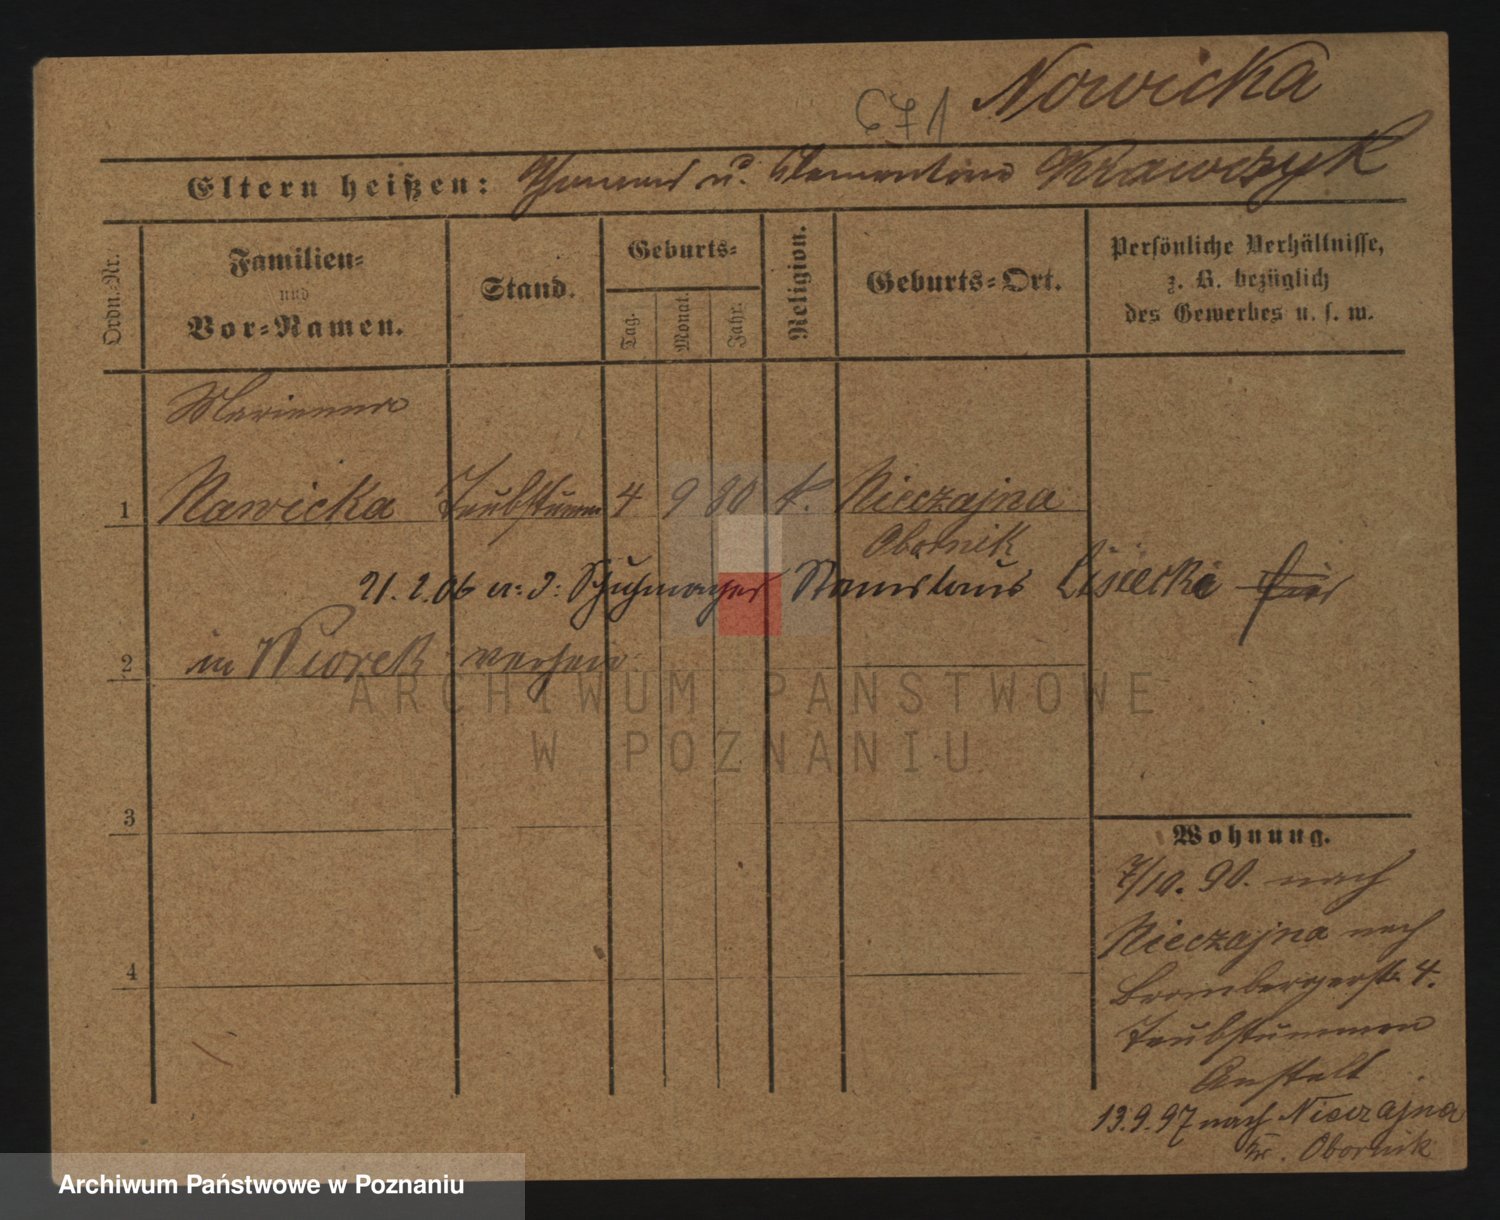 671 Nowicka
Eltern heißen: Thomas u. Clementine Krawczyk
Ordn.-Nr.
Familien-
und
Vor-Namen.
Stand.
Geburts-
Tag.
Monat.
Jahr.
Religion.
Geburts-Ort.
Persönliche Verhältnisse,
z. B. bezüglich
des Gewerbes u. s. w.
Marianna
1 Nawicka Taubstumm 4 9 80 k. Nieczajna
Obornik
21. 2. 06 Schuhmacher Stanislaus Lisiecki
2 in Wiorek
3
4
Wohnung.
7/10. 90. nach
Nieczajna nach
Brombergerstr. 4.
Taubstummen
Anstalt
13.9.97 nach Nieczajna
Kr. Obornik
ARCHIWUM PAŃSTWOWE
W POZNANIU
Archiwum Państwowe w Poznaniu